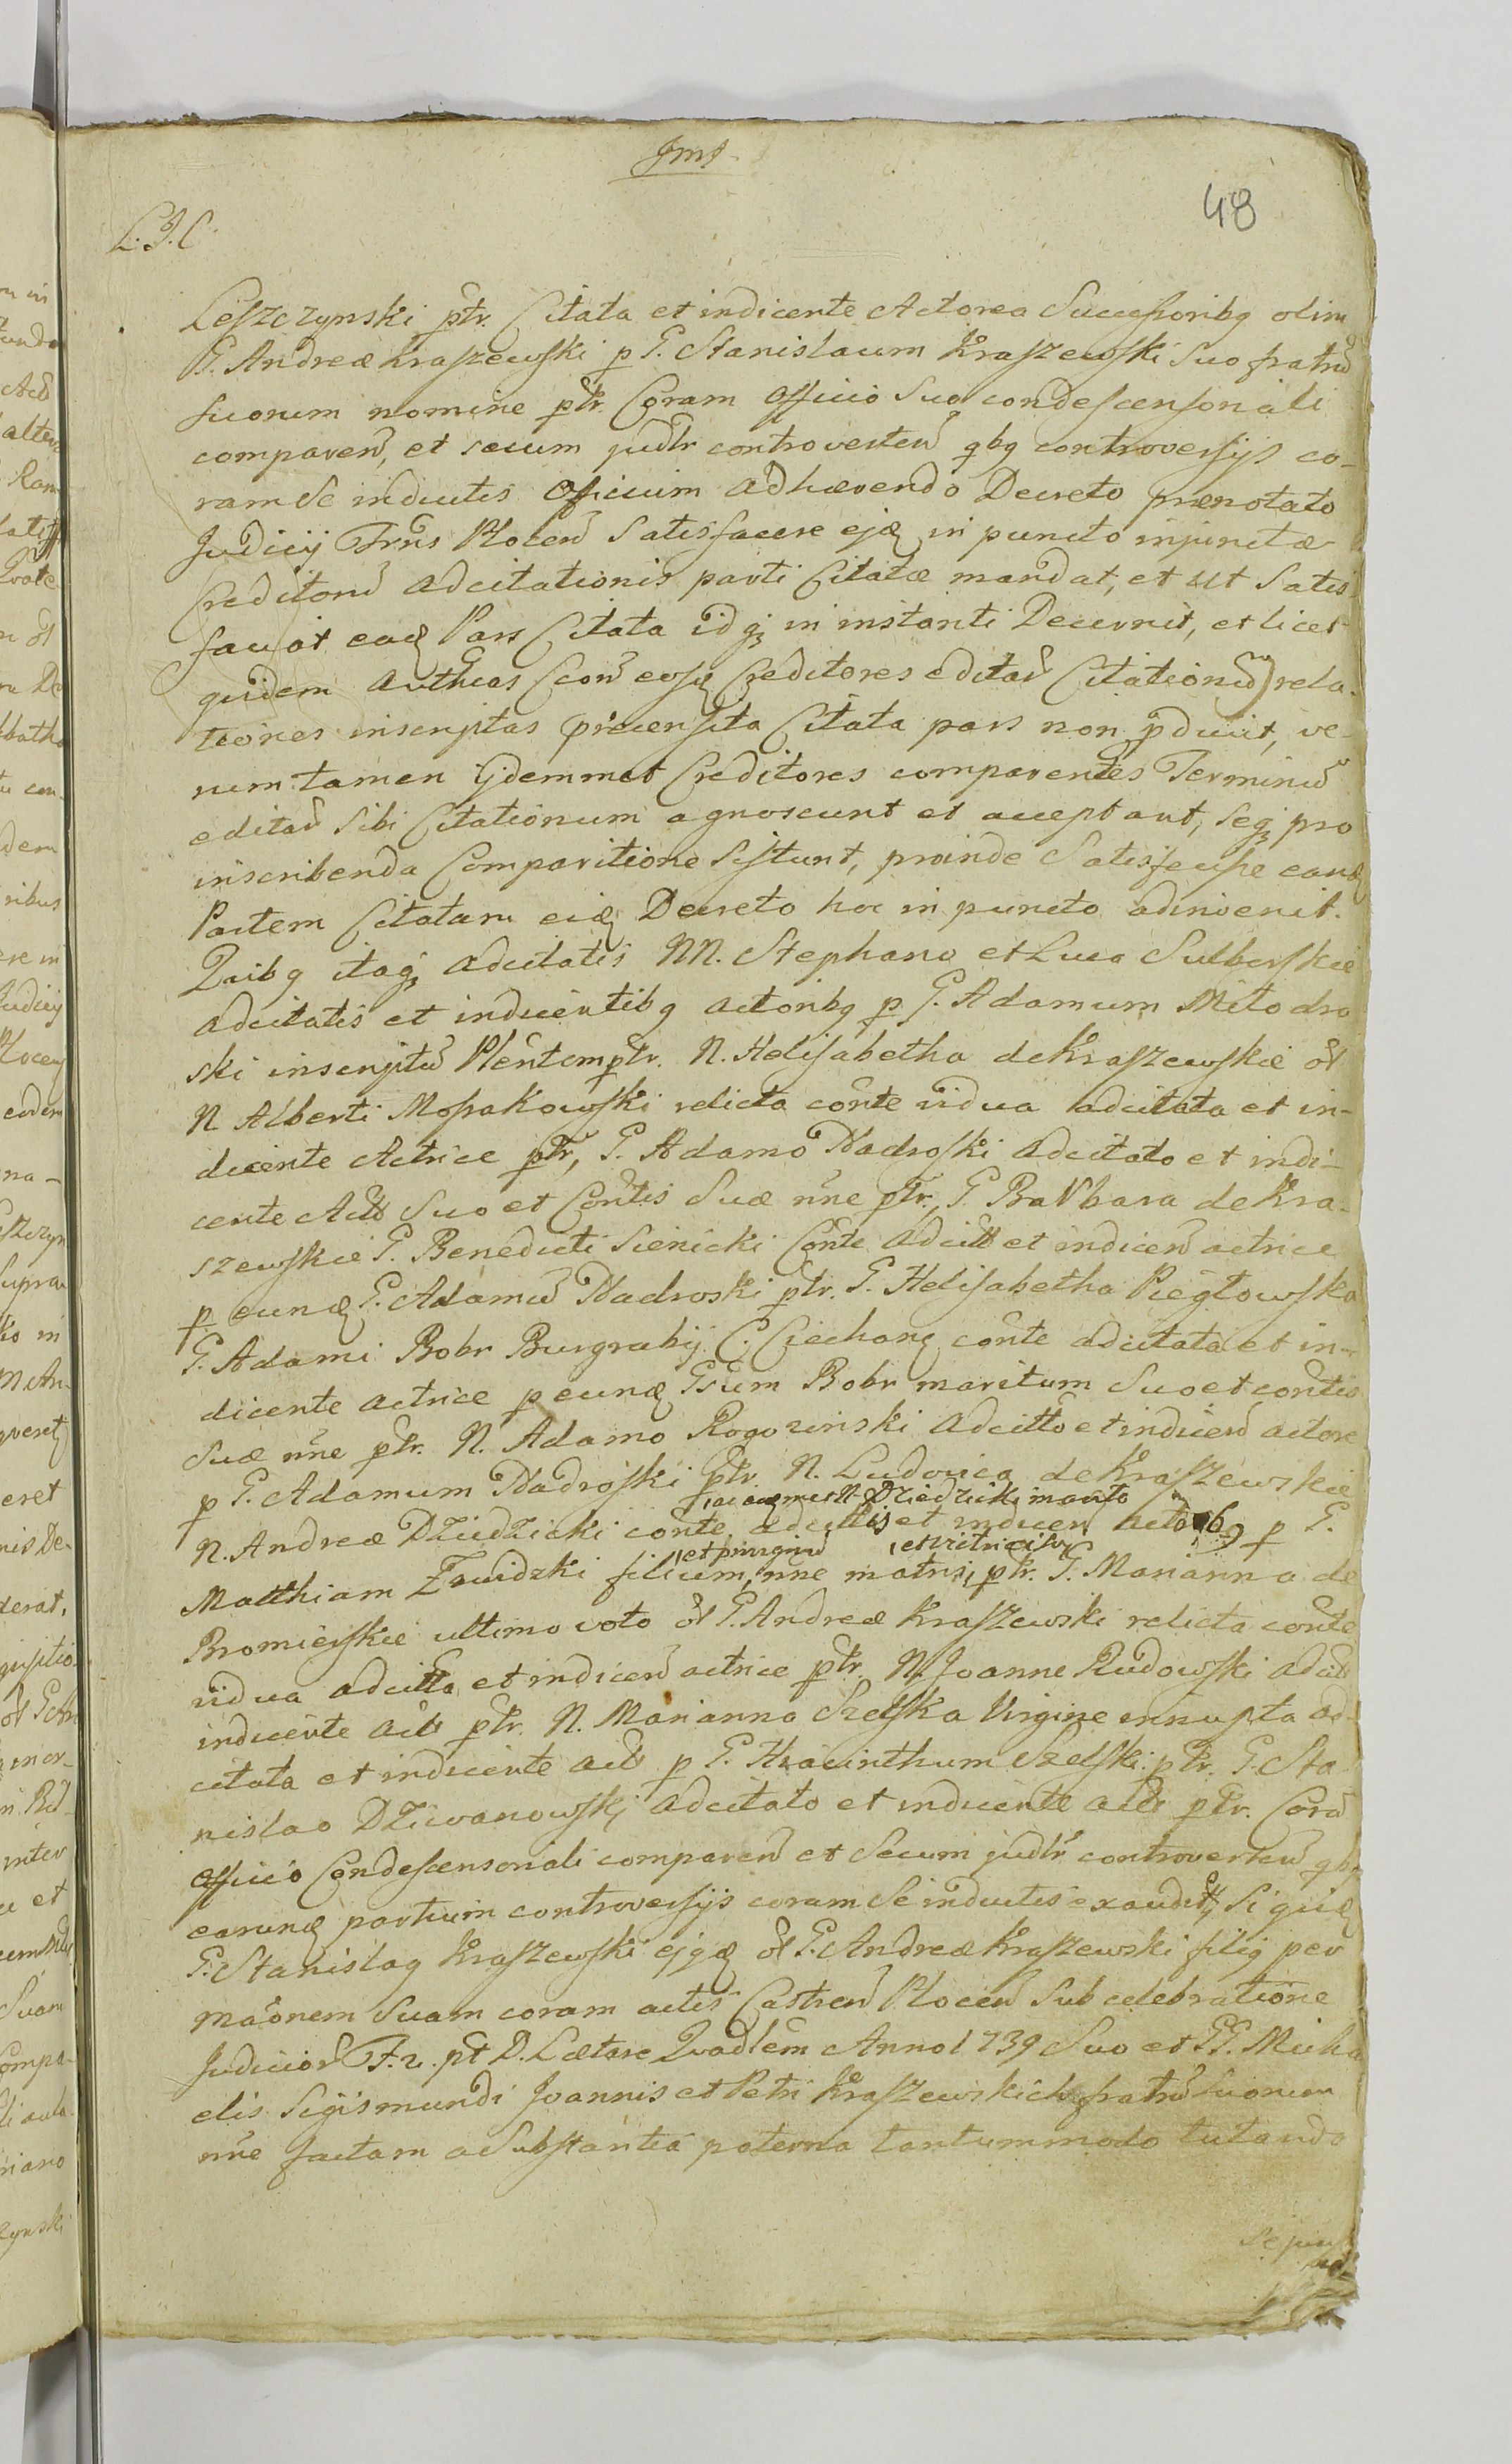 Jms
48
L. J. C.
Leszczynski ptr. Citata et indicente Actorea Successoribq olim
G. Andreæ Kraszewski p G. Stanislaum Kraszewski Suo fratrũ
suorum nomine ptr. Coram Officio Suo condescensoriali
comparen, et secum judlr controverten qbq controversijs co-
ram Se inductis Officium adhærendo Decreto prænotato
Judicij Trnis Plocen Satisfacere ejq in puncto injunctæ
Creditorũ adcitationis parti Citatæ mandat, et ut Satis
faciat eadq Pars Citata idqz in instanti Decernit, et licet
quidem authcas eosdq Creditores editar Citationũ rela-
tiones inscriptas præcensita Citata pars non pduxit, ve-
rum tamen ijdemmet Creditores comparentes Terminũ
editar Sibi Citationum agnoscunt et acceptant, seqz pro
inscribenda Comparitione Sistunt, proinde Satisfecisse eandq
Partem Citatam eidq Decreto hoc in puncto adinvenit.
Quibq itaqz adcitatis NN. Stephano et Luca Sulberskie
adcitatis et indicentibq actoribq p G. Adamum Mitodro
ski inscriptũ Plentem ptr. N. Helisabetha de Kraszewskie ol
N Alberti Mossakowski relicta conte vidua adcitata et in-
dicente Actrice ptr, G. Adamo Nadroski adcitato et indi-
cente Acto Suo et Contis Suæ nne ptr., G. Barbara de Kra-
szewskie G. Benedicti Sienicki Conte adcitt et indicen actrice
p eundq G. Adamũ Nadroski ptr. G. Helisabetha Pięgłowska
G. Adami Bobr Burgrabij C. Ciechanq conte adcitata et in-
dicente actrice p eundq Gsum Bobr maritum Suo et contis
Suæ nne ptr. N. Adamo Rogozinski adcitto et indicen actore
p G. Adamum Nadroski ptr N. Ludovica de Kraszewskie
ac eumet N Dziedzicki marito
N. Andreæ Dziedzicki conte, adcittis et indicen actorbq p G.
et privignũ et vitrici sui
Matthiam Zawidzki filium, nne matris, ptr. G. Marianna de
Bromierskie ultimo voto ol G. Andreæ Kraszewski relicta conte
vidua adcitta et indicen actrice ptr. N. Joanne Rudowski adcit
indicente acto ptr. N. Marianna Szelska Virgine innupta ad-
citata et indicente acto p G. Hyacinthum Szelski ptr. G. Sta-
nislao Dziwanowski adcitato et indicente acto ptr. Corã
Officio Condescensoriali comparen et Secum judlr controverten qbq
earundq partium controversijs coram Se inductis exauditq, Siquidq
G. Stanislaq Kraszewski ejqdq ol G. Andreæ Kraszewski filiq per
maonem Suam coram actis Castren Plocen Sub celebratione
Judicior T. r. pt D. Lætare Quadlem Anno 1739 Suo et GG. Micha
elis Sigismundi Joannis et Petri Kraszewskich fratrũ Suorum
nne factam a Substantia paterna tantummodo tutando